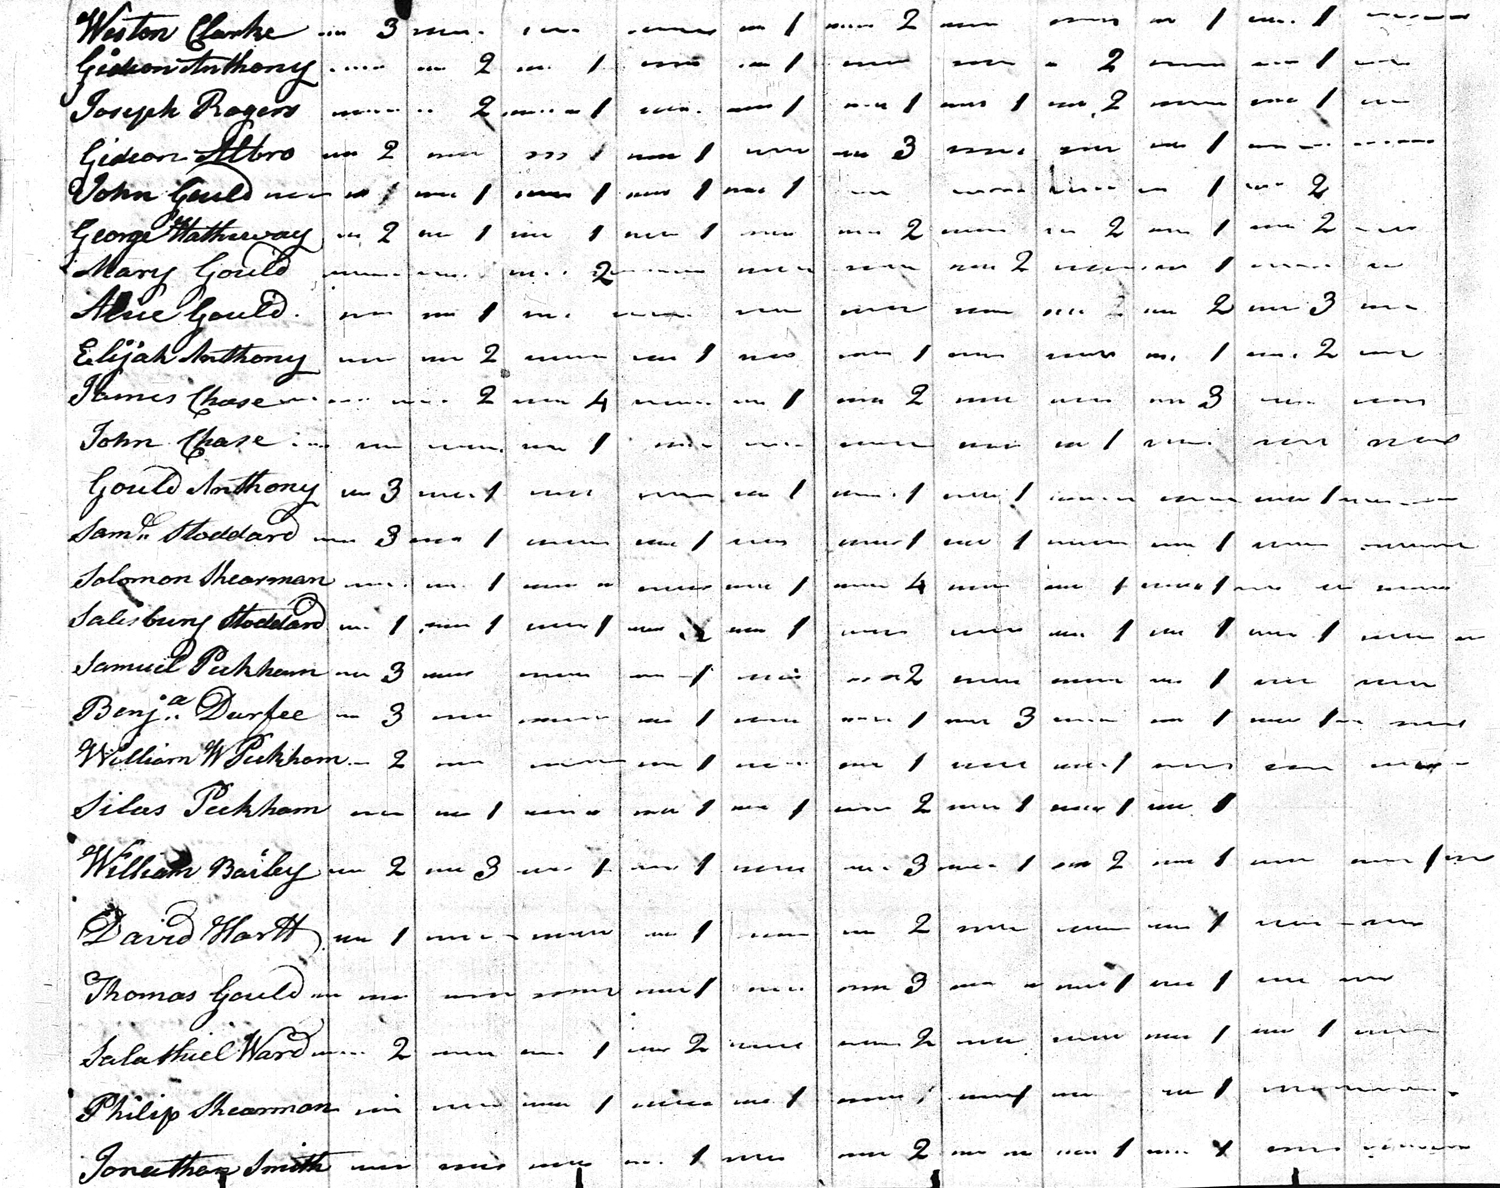 Weston Clarke 3 1 2 1 1
Gideon Anthony 2 1 1 2 1
Joseph Rogers 2 1 1 1 1 2 1
Gideon Albro 2 1 1 3 1
John Gould 1 1 1 1 1 1 2
George Hathaway 2 1 1 1 2 2 1 2
Mary Gould 2 2 1
Alice Gould 1 2 3
Elijah Anthony 2 1 1 1 2
James Chase 2 4 1 2 3
John Chase 1 1
Gould Anthony 3 1 1 1 1 1
Saml. Stoddard 3 1 1 1 1 1
Solomon Shearman 1 1 4 1 1
Salisbury Stoddard 1 1 1 1 1 1 1
Samuel Peckham 3 1 2 1
Benja. Durfee 3 1 1 3 1 1
William W Peckham 2 1 1 1
Silas Peckham 1 1 1 2 1 1 1
William Bailey 2 3 1 1 3 1 2 1 1
David Hartt 1 1 2 1
Thomas Gould 1 3 1 1
Salathiel Ward 2 1 2 2 1 1
Philip Shearman 1 1 1 1 1
Jonathan Smith 1 2 1